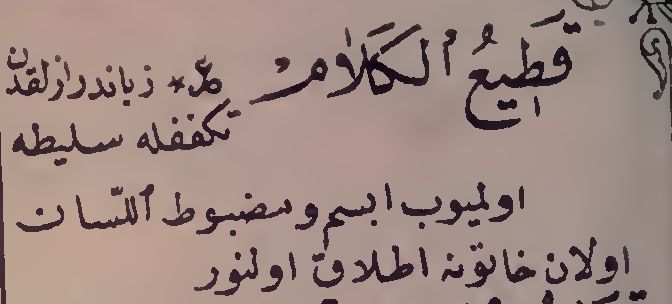 قَطِيعُ ٱلْكَلَامِ
مر* زباندرازلقدن
تكففله سليطه
اولميوب ابسم و مضبوط ٱللّسان
اولان خاتونه اطلاق اولنور